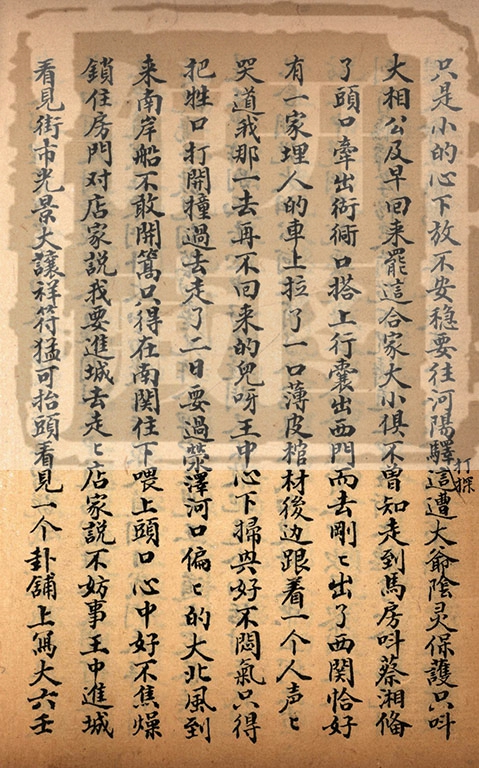 只是小的心下放不安稳要往河陽驛打探這遭大爺陰灵保護只叫
大相公及早回来罷這合家大小俱不曽知走到馬房叫蔡湘偹
了頭口牽出衚衕口搭上行囊出西門而去剛ヒ出了西関恰好
有一家埋人的車上拉了一口薄皮棺材後边跟着一个人声ヒ
哭道我那一去再不回来的兒呀王中心下掃興好不悶氣只得
把牲口打開撞過去走了二日要過荣澤河口偏ヒ的大北風到
来南岸船不敢開篙只得在南関住下喂上頭口心中好不焦燥
鎖住房門对店家説我要進城去走ヒ店家説不妨事王中進城
看見街市光景大讓祥符猛可抬頭看見一个卦舖上寫大六壬